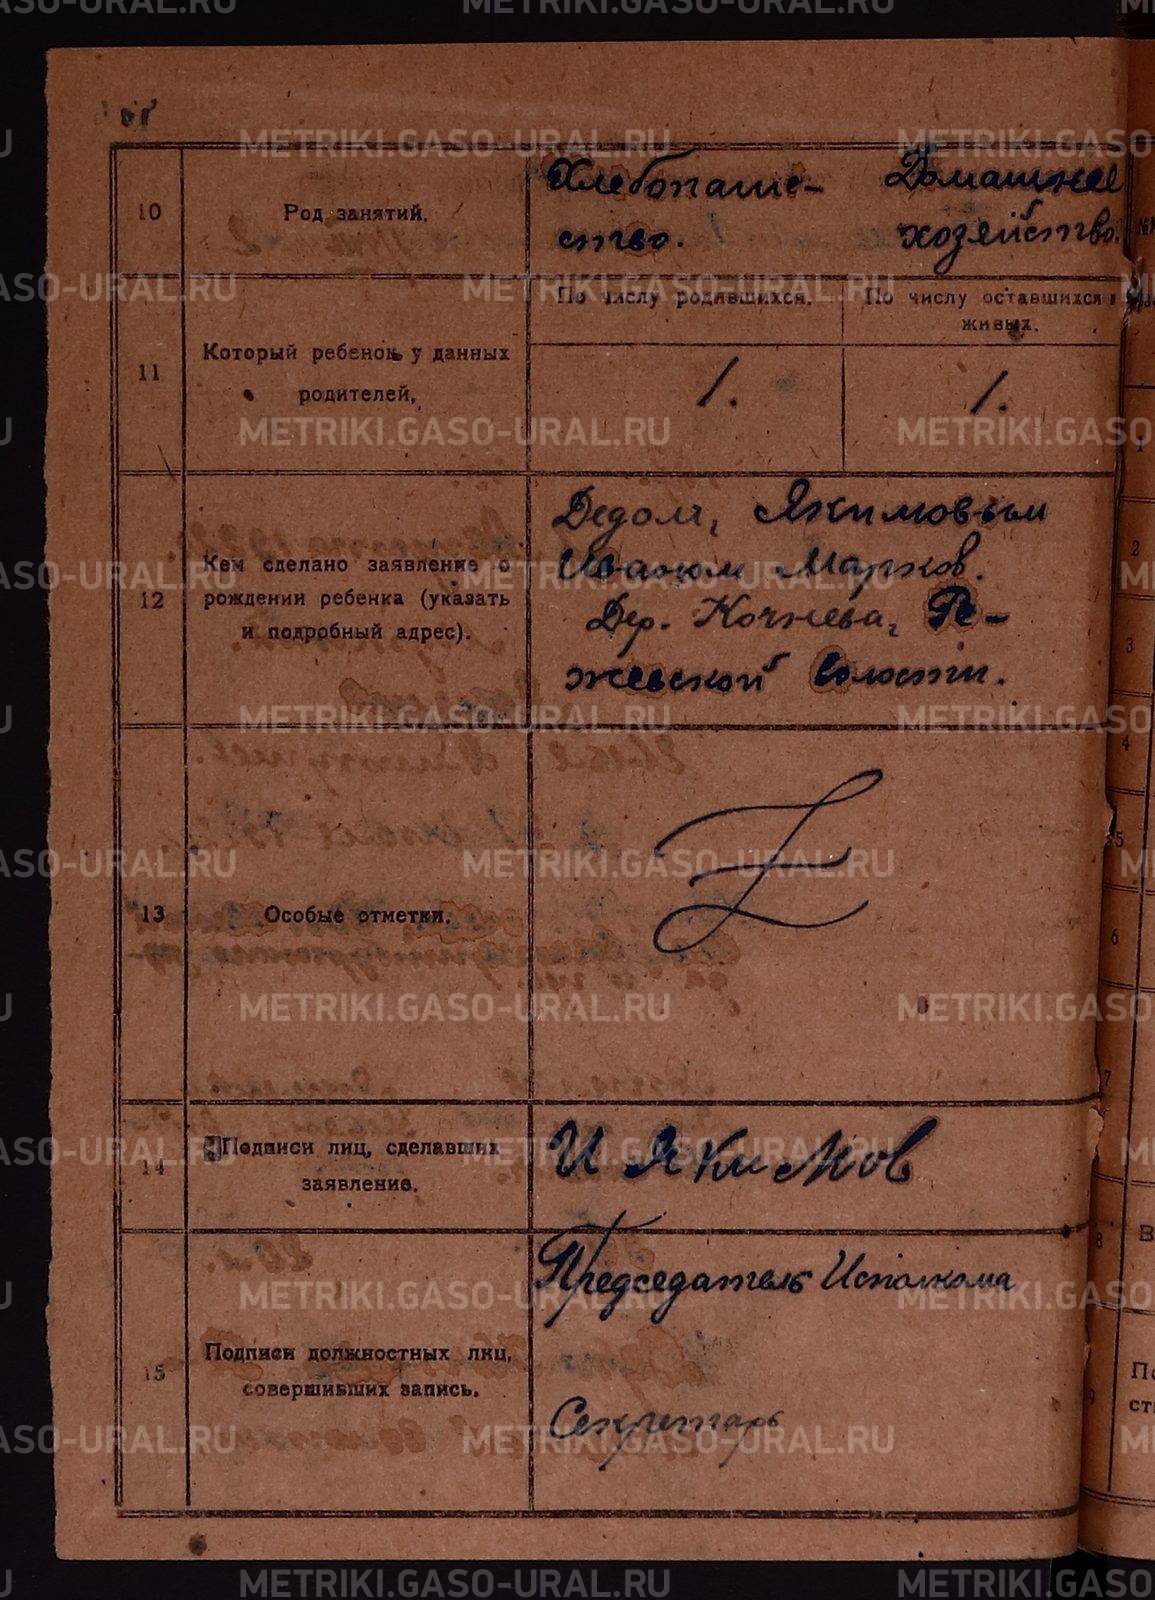 10
Род занятий.
Хлебопаше-
ство.
Домашнее
хозяйство.
11
Который ребенок у данных
родителей,
По числу родившихся.
По числу оставшихся в
живых.
1.
1.
12
Кем сделано заявление о
рождении ребенка (указать
и подробный адрес).
Дедом, Якимовым
Иваном Марков.
Дер. Кочнева, Ре-
жевской волости.
13
Особые отметки.
14
Подписи лиц, сделавших
заявление.
И Якимов
15
Подписи должностных лиц,
совершивших запись.
Председатель Исполкома
Секретарь
METRIKI.GASO-URAL.RU